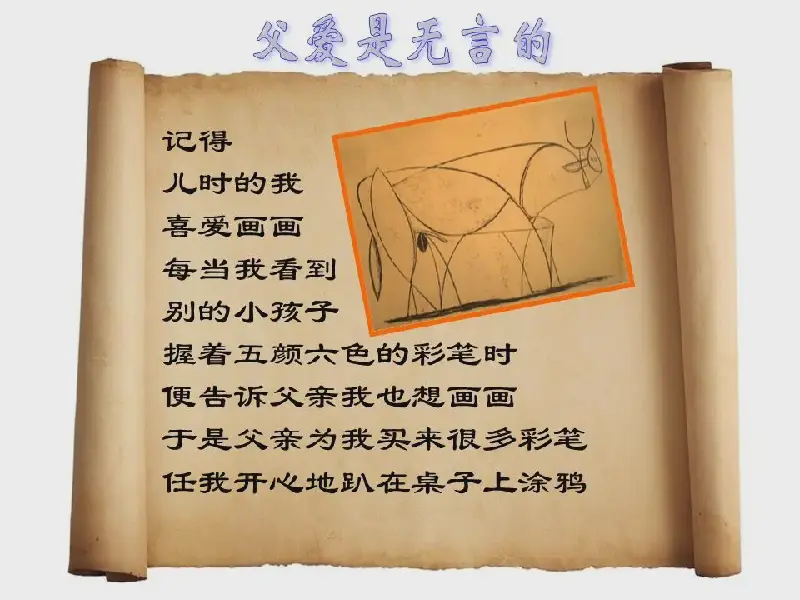 父爱是无言的
记得
儿时的我
喜爱画画
每当我看到
别的小孩子
握着五颜六色的彩笔时
便告诉父亲我也想画画
于是父亲为我买来很多彩笔
任我开心地趴在桌子上涂鸦